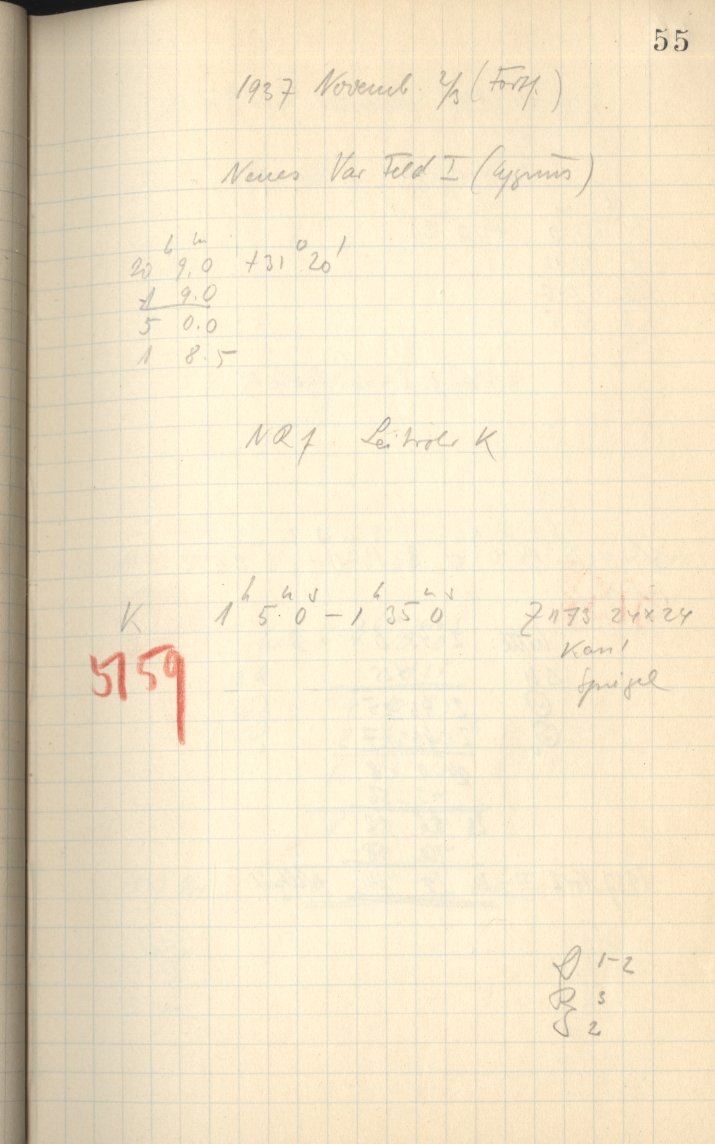 55
1937 Novemb. 2/3 (Forts.)
Neues Var Feld I (Cygnus)
20h 9.0m +31° 20'
1 9.0
5 0.0
1 8.5
Leitrohr K
K 1h 5m.0s – 1h 35m 0s 24×24
5159
Spiegel
D 1-2
R 3
S 2